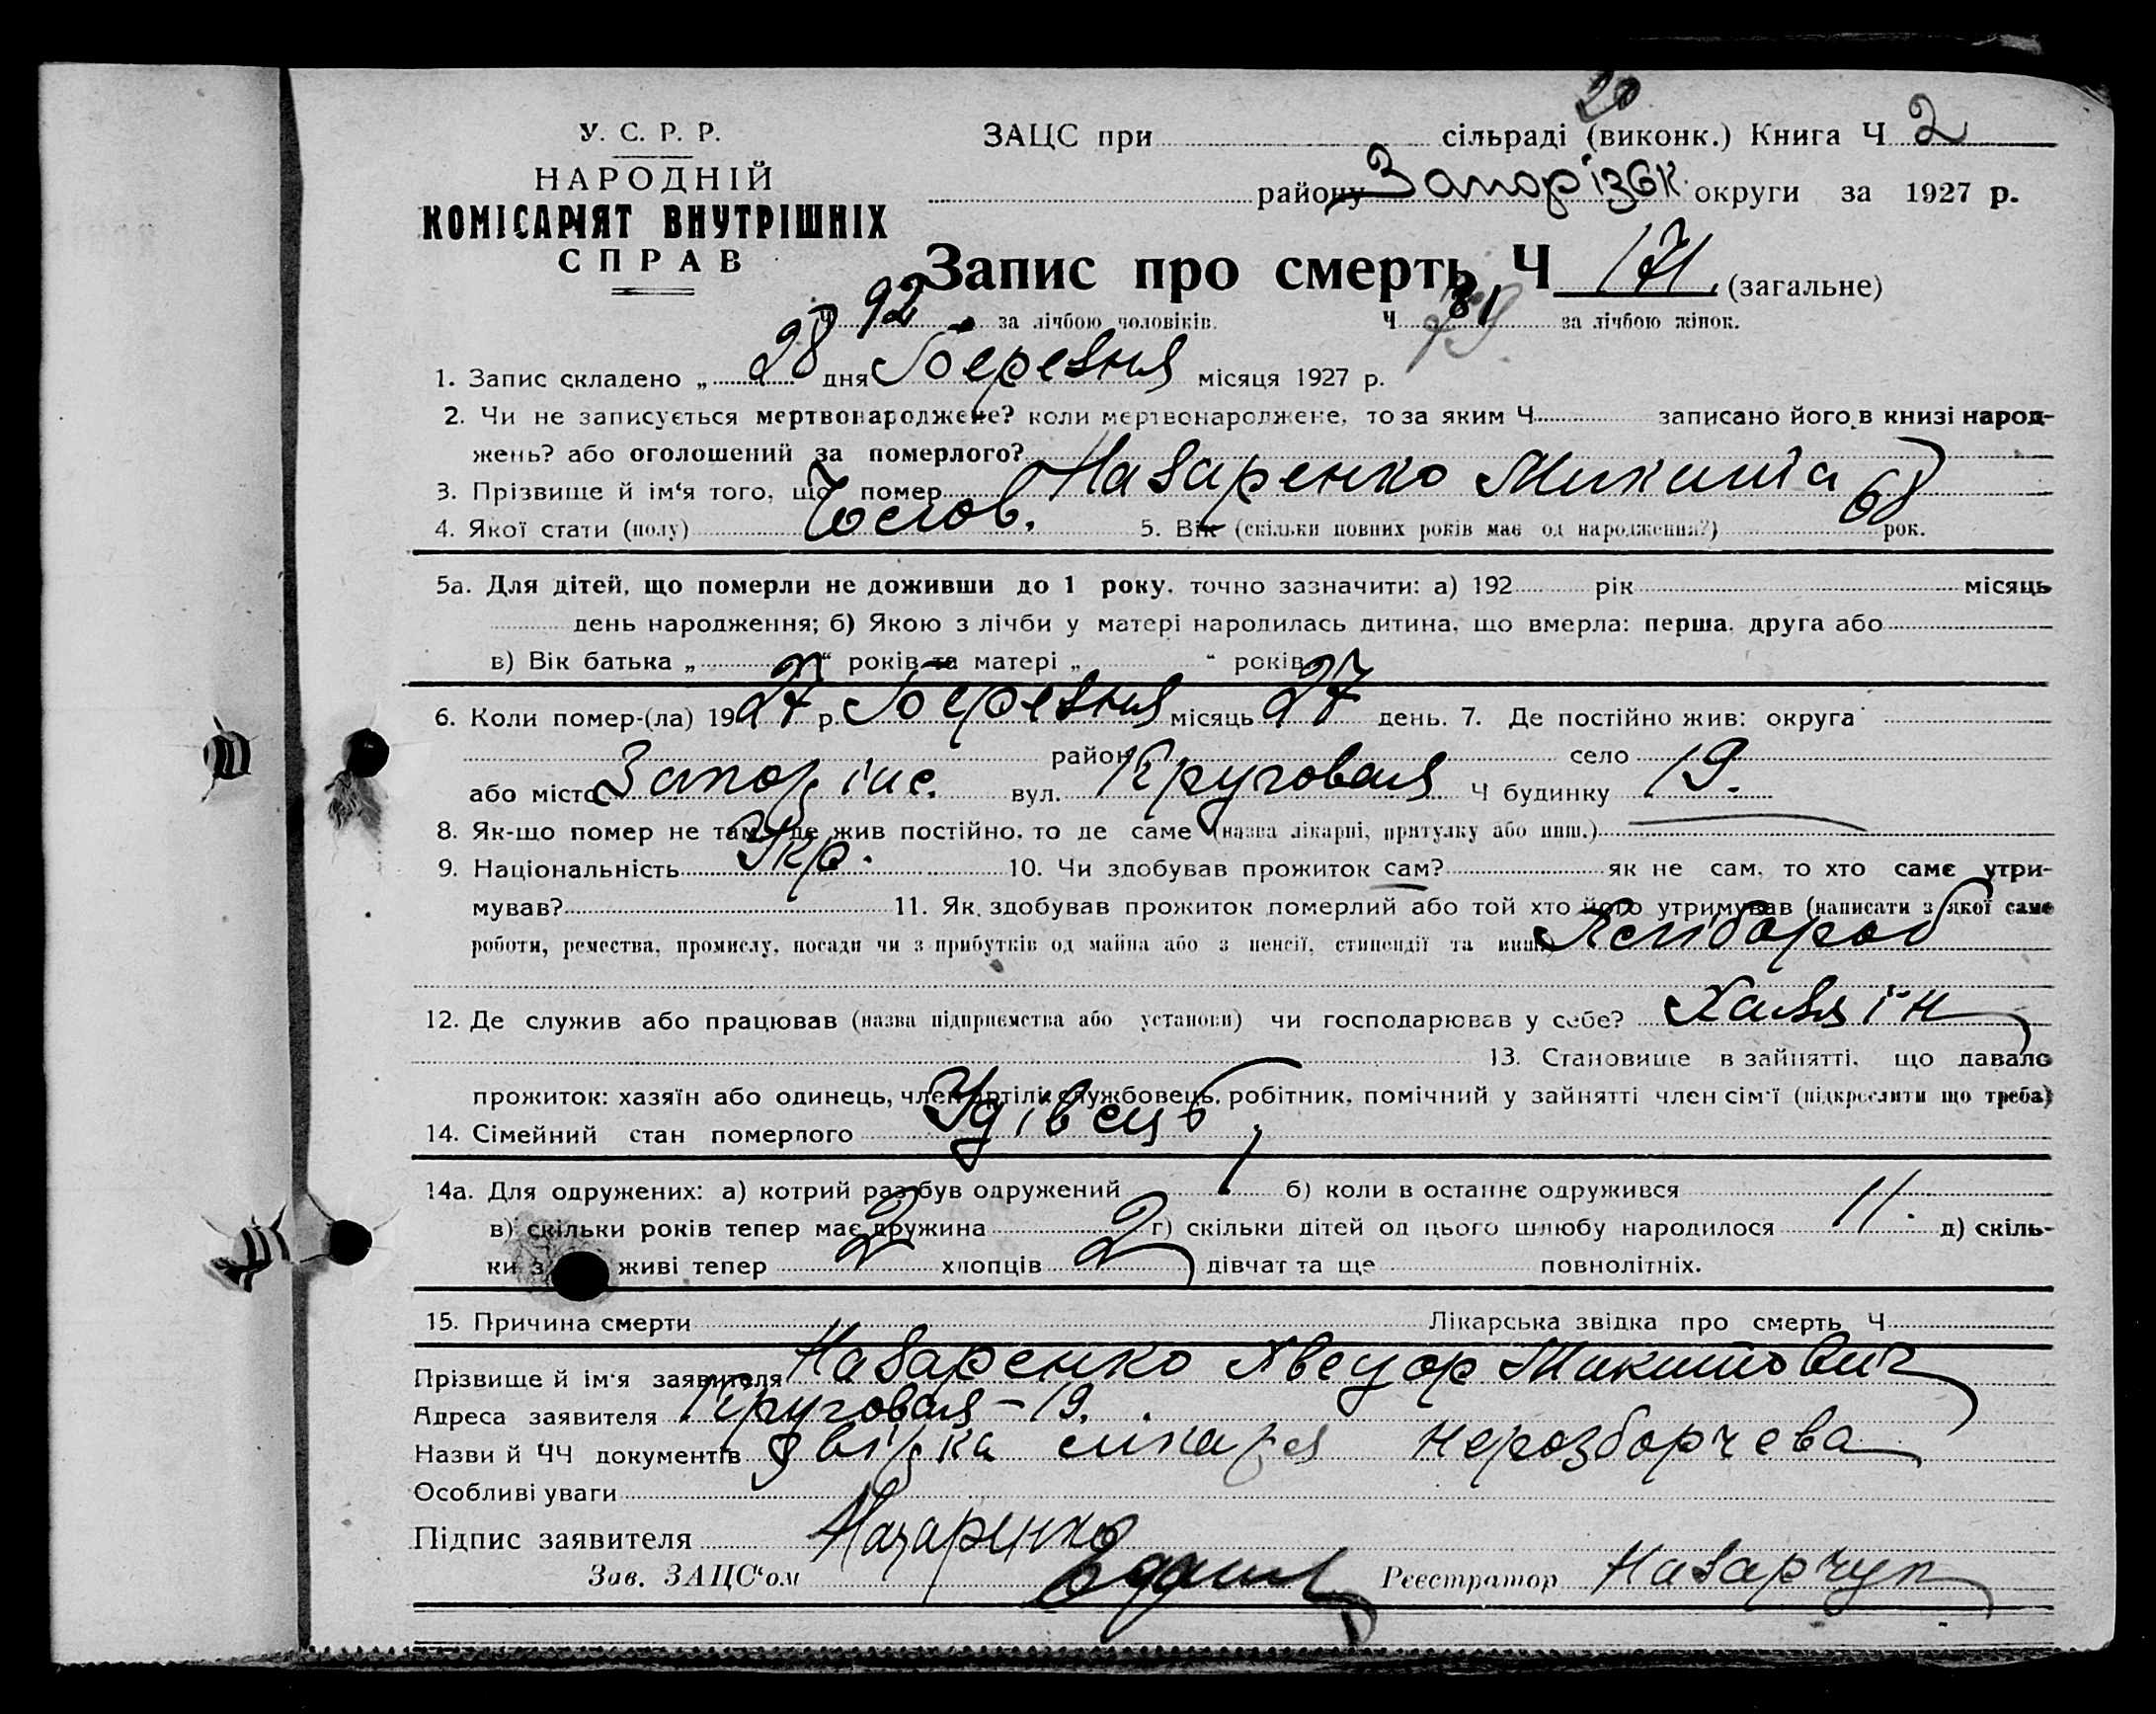 20
У. С. Р. Р.
НАРОДНІЙ
КОМІСАРІЯТ ВНУТРІШНІХ
СПРАВ
ЗАЦС при сільраді (виконк.) Книга Ч 2
району Запорізьк. округи за 1927 р.
Запис про смерть Ч 171 (загальне)
Ч 92 за лічбою чоловіків. Ч 79 за лічбою жінок.
1. Запис складено „ 28 дня Березня місяця 1927 р.
2. Чи не записується мертвонароджене? коли мертвонароджене, то за яким Ч записано його в книзі народ-
жень? або оголошений за померлого?
3. Прізвище й ім'я того, що помер Назаренко Микита
4. Якої стати (полу) Чолов. 5. Вік (скільки повних років має од народження?) 68 рок.
5а. Для дітей, що померли не доживши до 1 року, точно зазначити: а) 192 рік місяць
день народження; б) Якою з лічби у матері народилась дитина, що вмерла: перша, друга або
в) Вік батька „ “ років та матері „ “ років
6. Коли помер-(ла) 1927 р. Березня місяць 27 день. 7. Де постійно жив: округа
район село
або місто Запоріже. вул. Круговая Ч будинку 19.
8. Як-що помер не там, де жив постійно, то де саме (назва лікарні, притулку або инш.)
9. Національність Укр. 10. Чи здобував прожиток сам? як не сам, то хто саме утри-
мував? 11. Як здобував прожиток померлий або той хто його утримував (написати з якої саме
роботи, ремества, промислу, посади чи з прибутків од майна або з пенсії, стипендії та инш.) Хлібороб
12. Де служив або працював (назва підприємства або установи) чи господарював у себе? Хазяїн
13. Становище в зайнятті, що давало
прожиток: хазяїн або одинець, член артілі, службовець, робітник, помічний у зайнятті член сім'ї (підкреслити що треба)
14. Сімейний стан померлого Удівець
14а. Для одружених: а) котрий раз був одружений 1 б) коли в останнє одружився
в) скільки років тепер має дружина г) скільки дітей од цього шлюбу народилося 11. д) скіль-
ки з живі тепер 2 хлопців 2 дівчат та ще повнолітніх.
15. Причина смерти Лікарська звідка про смерть Ч
Прізвище й ім'я заявителя Назаренко Хведор Микитович
Адреса заявителя Круговая – 19.
Назви й ЧЧ документів звідка лікаря нерозборчева
Особливі уваги
Підпис заявителя Назаренко
Зав. ЗАЦС'ом Реєстратор Назарчук